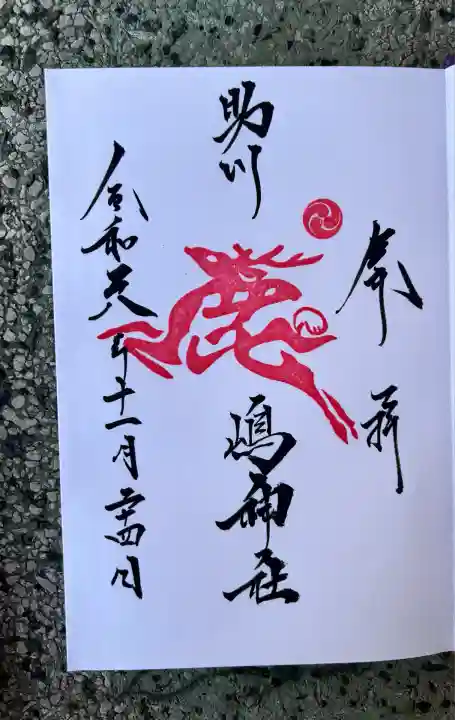 奉拝
助川
鹿嶋神社
令和元年十一月二十四日